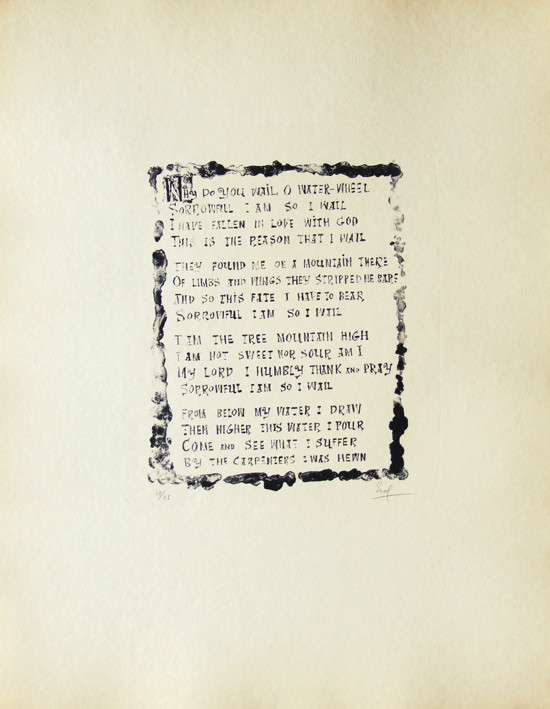 Why Do YOU WAIL O WATER-WHEEL
SORROWFUL I AM SO I WAIL
I HAVE FALLEN IN LOVE WITH GOD
THIS IS THE REASON THAT I WAIL
THEY FOUND ME ON A MOUNTAIN THERE
OF LIMBS AND WINGS THEY STRIPPED ME BARE
AND SO THIS FATE I HAVE TO BEAR
SORROWFUL I AM SO I WAIL
I AM THE TREE MOUNTAIN HIGH
I AM NOT SWEET NOR SOUR AM I
MY LORD I HUMBLY THANK AND PRAY
SORROWFUL I AM SO I WAIL
FROM BELOW MY WATER I DRAW
THEN HIGHER THIS WATER I POUR
COME AND SEE WHAT I SUFFER
BY THE CARPENTERS I WAS HEWN